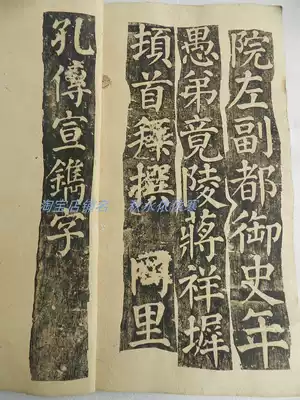 院左副都御史年
愚弟竟陵蔣祥墀
頓首拜撰 闕里
孔傳宣鐫字
淘宝店铺名